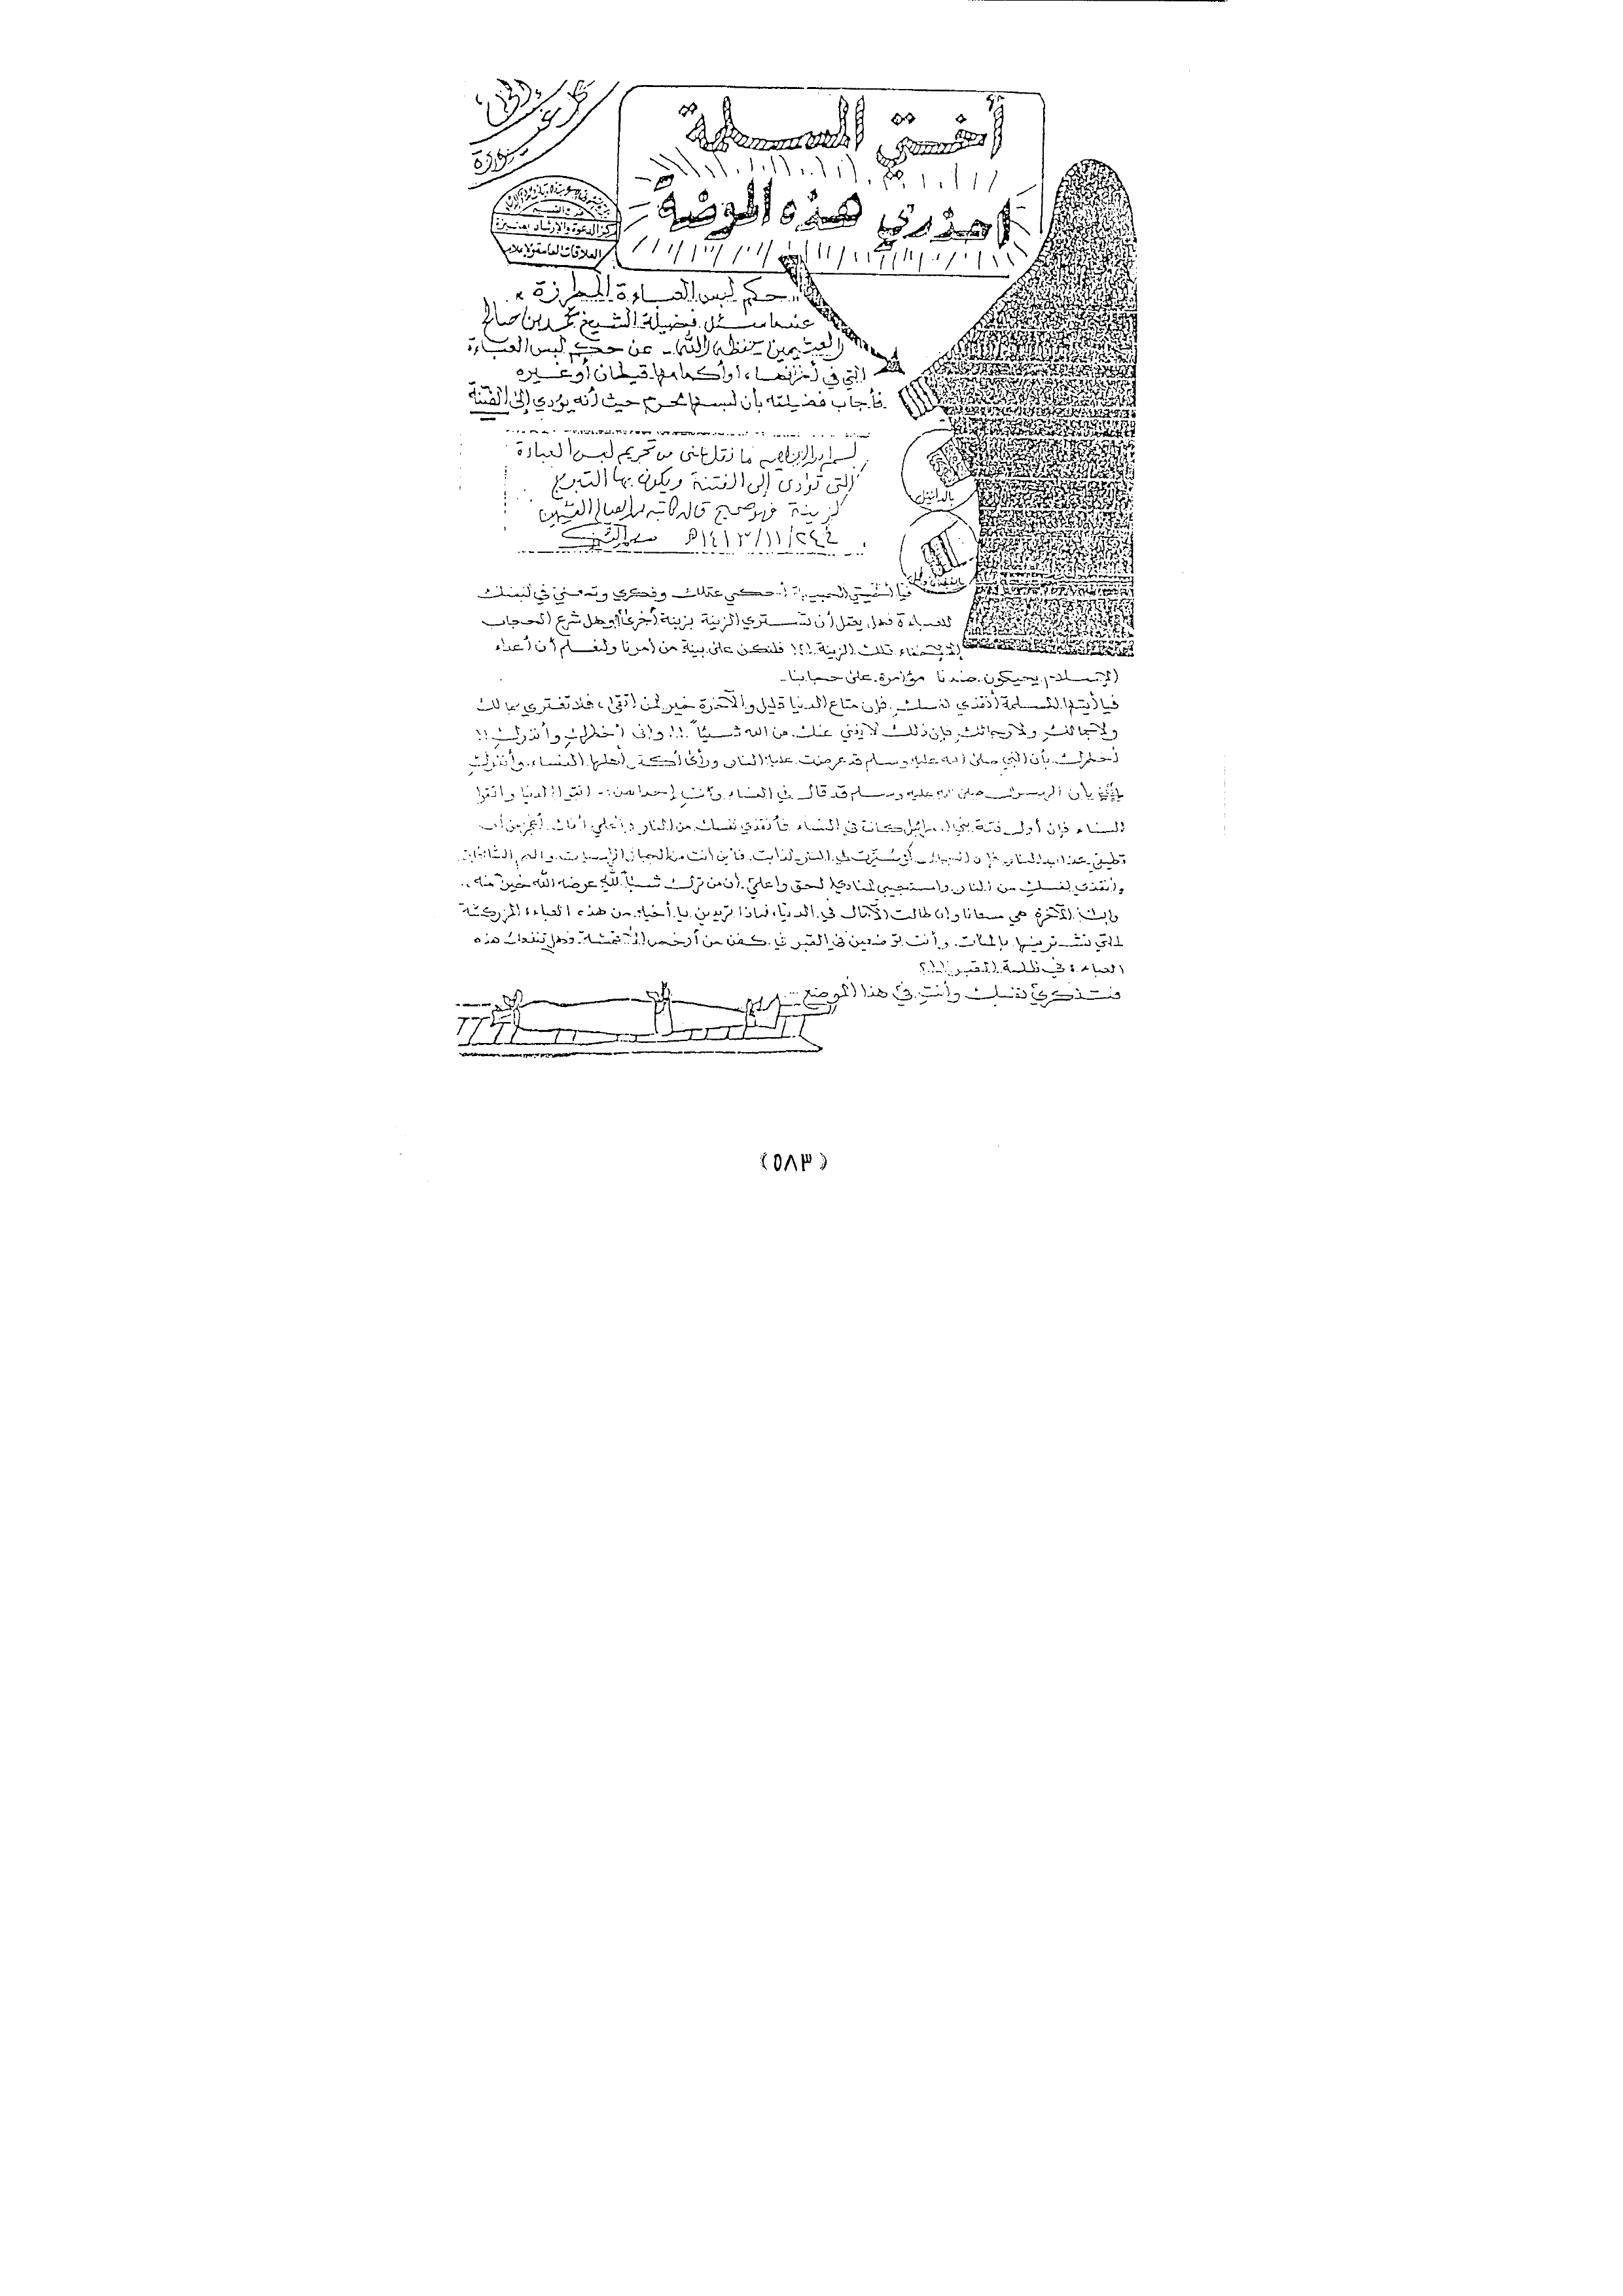 أختي المسلمة
احذري هذه الموضة
مركز الدعوة والإرشاد بعنيزة
العلاقات العامة والإعلام
"حكم لبس العباءة المطرزة"
عندما سئل فضيلة الشيخ محمد بن صالح
العثيمين يحفظه الله - عن حكم لبس العباءة
التي في أطرافها، أو أكمامها قيطان أو غيره
فأجاب فضيلته بأن لبسها محرم حيث أنه يؤدي إلى الفتنة
بالدانتيل
ما نقل عني من تحريم لبس العباءة
التي تؤدي إلى الفتنة ويكون بها التبرج
بزينة فهو صحيح قاله كاتبه محمد الصالح العثيمين
١٤١٣/١١/٢٤هـ
فيا أختي الحبيبة أحكمي عقلك وفكري وتمعني في لبسك
للعباءة فهل يعقل أن تستري الزينة بزينة أخرى! وهل شرع الحجاب
إلا لإخفاء تلك الزينة!؟! فلنكن على بينة من أمرنا ولنعلم أن أعداء
الإسلام يحيكون ضدنا مؤامرة على حجابنا -
فيا أيتها المسلمة أنقذي نفسك فإن متاع الدنيا قليل والآخرة خير لمن اتقى، فلا تغتري بمالك
ولا بجمالك ولا فإن ذلك لا يغني عنك من الله شيئاً!! وإني أخطرك وأنذرك!!
أخطرك بأن النبي صلى الله عليه وسلم قد عرضت عليه النار ورأى أكثر أهلها النساء، وأنذرك
بأن الرسول صلى الله عليه وسلم قد قال في النساء وأنت إحداهن: - اتقوا الدنيا واتقوا
النساء فإن أول فتنة بني إسرائيل كانت في النساء فأنقذي نفسك من النار واعلمي أنك أعجز من أن
تطيقي عذاب النار فإن الجبال لو سُيّرت في النار لذابت. فأين أنت من الجبال الراسيات والصم الشامخات
وأنقذي نفسك من النار واستجيبي لمنادي الحق واعلمي أن من ترك شيئاً لله عوضه الله خيراً منه.
الآخرة هي وإن طالت الآمال في الدنيا، فماذا تريدين يا أخيه من هذه العباءة المزركشة
التي تشترينها بالمئات. وأنت توضعين في القبر في كفن من أرخص الأقمشة. وهل تنفعك هذه
العباءة في ظلمة القبر!!؟
فتذكري نفسك وأنت في هذا الموضع --
(٥٨٣)